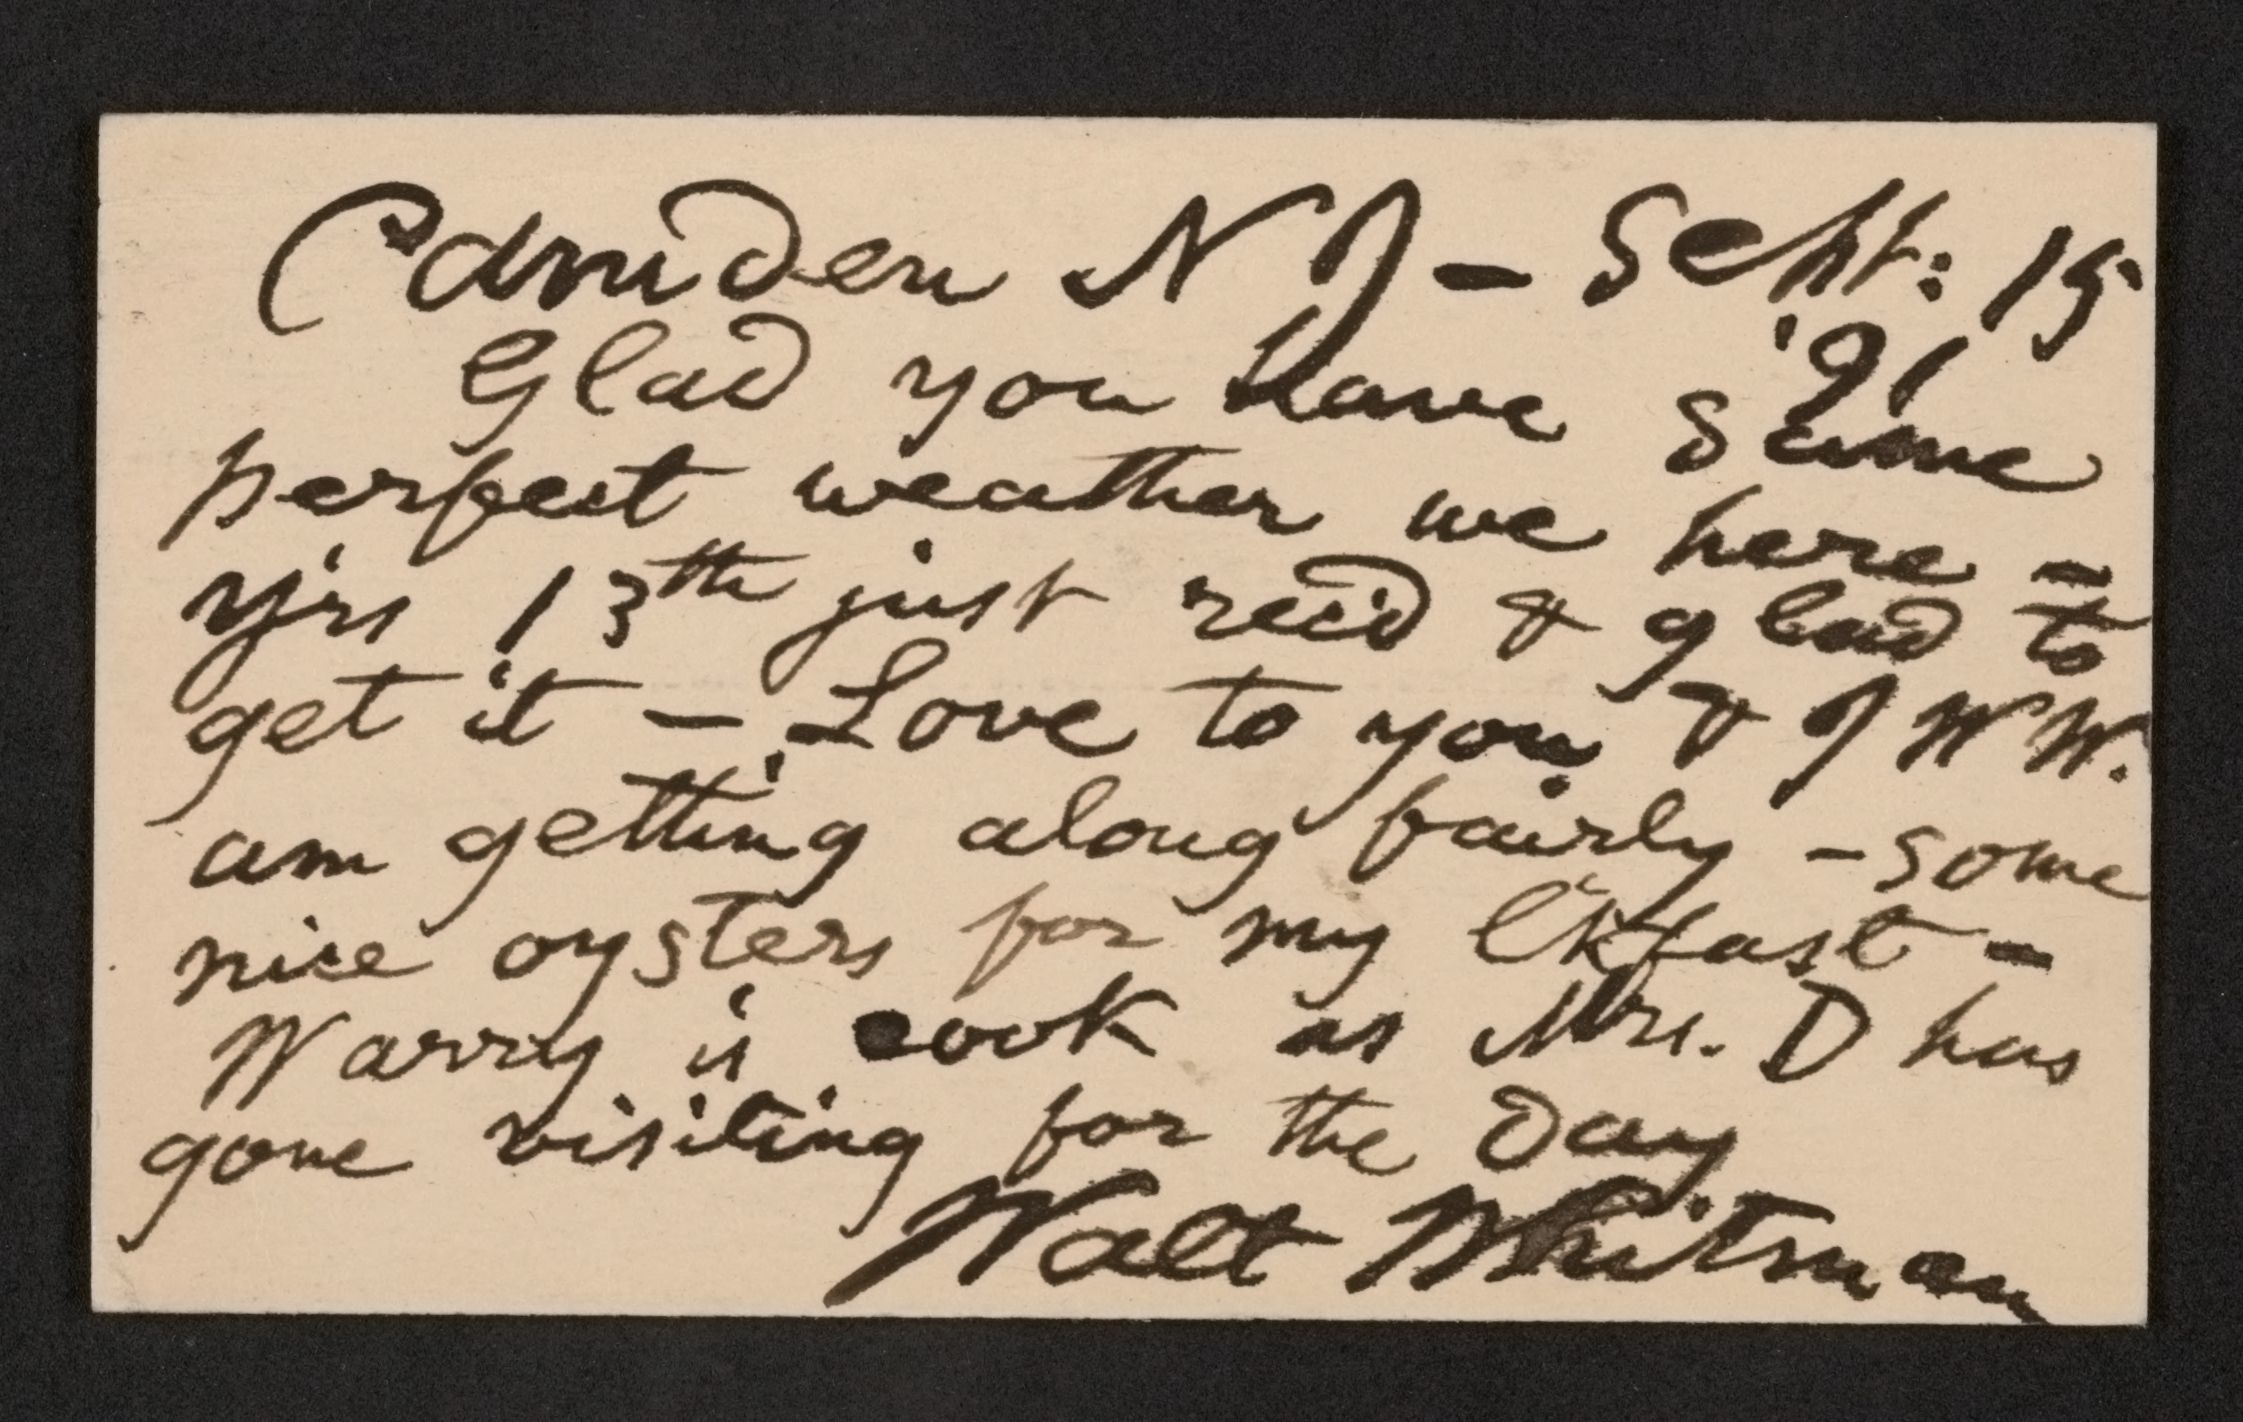 Camden N J – Sept: 15
'91
Glad you have same
perfect weather we here –
y'rs 13th just rec'd & glad to
get it – Love to you & J W W.
am getting along fairly – some
nice oysters for my b'kfast –
Warry is cook as Mrs. D has
gone visiting for the day
Walt Whitman